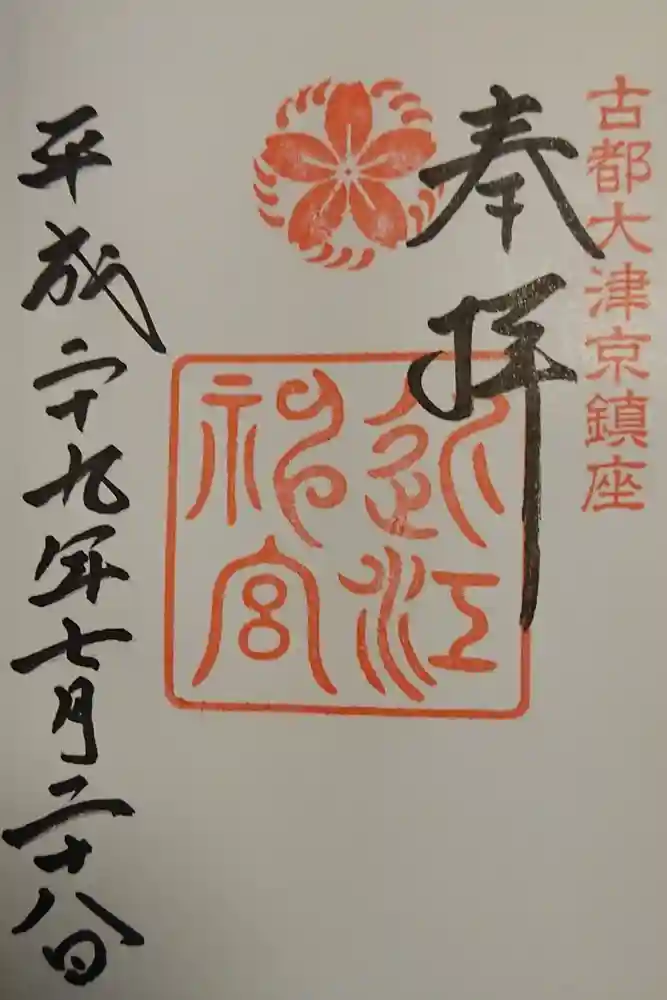 古都大津京鎮座
奉拝
近江
神宮
平成二十九年七月二十八日